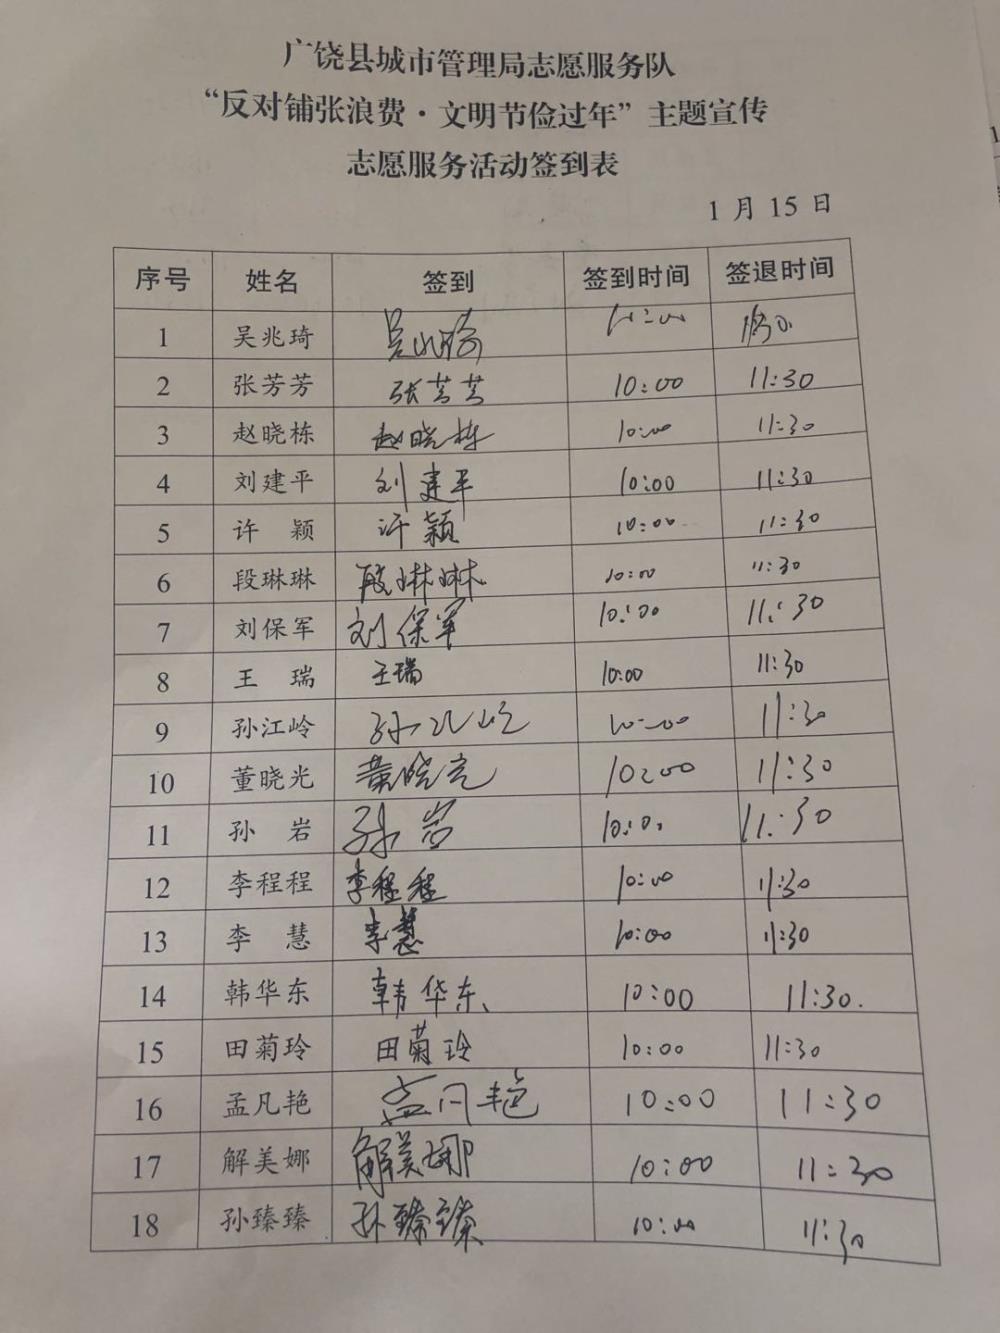 广饶县城市管理局志愿服务队
“反对铺张浪费·文明节俭过年”主题宣传
志愿服务活动签到表
1月15日
序号 姓名 签到 签到时间 签退时间
1 吴兆琦 吴兆琦 10:00 11:30.
2 张芳芳 张芳芳 10:00 11:30
3 赵晓栋 赵晓栋 10:00 11:30
4 刘建平 刘建平 10:00 11:30
5 许 颖 许颖 10:00 11:30
6 段琳琳 段琳琳 10:00 11:30
7 刘保军 刘保军 10:00 11:30
8 王 瑞 王瑞 10:00 11:30
9 孙江岭 孙江岭 10:00 11:30
10 董晓光 董晓光 10:00 11:30
11 孙 岩 孙岩 10:00 11:30
12 李程程 李程程 10:00 11:30
13 李 慧 李慧 10:00 11:30
14 韩华东 韩华东 10:00 11:30.
15 田菊玲 田菊玲 10:00 11:30
16 孟凡艳 孟凡艳 10:00 11:30
17 解美娜 解美娜 10:00 11:30
18 孙臻臻 孙臻臻 10:00 11:30